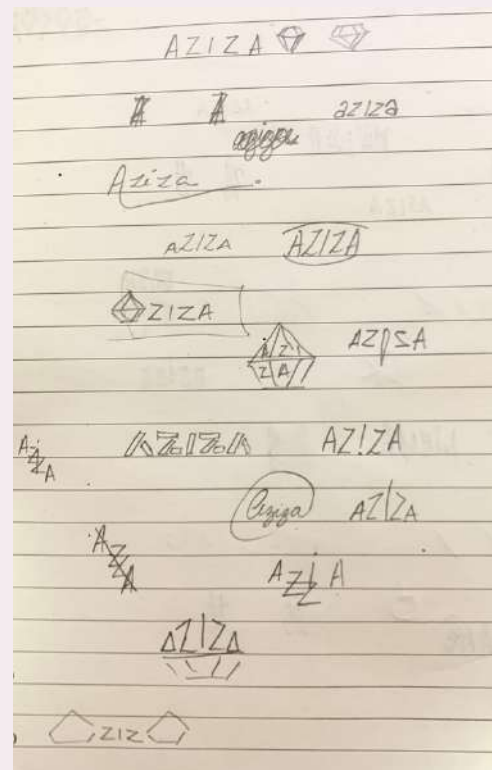 AZIZA
A A aziza
aziza
Aziza
AZIZA AZIZA
ZIZA
AZI
ZA
AZIZA
AZIZA AZ!ZA
AZIZA
Aziza AZIZA
AZIZA
AZIZA
AZIZA
ZIZ